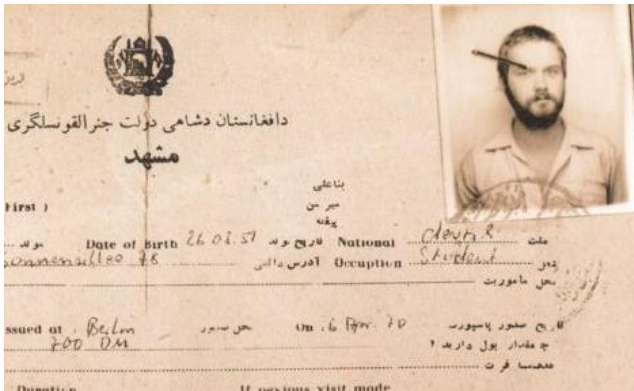 دافغانستان دشاهی دولت جنرالقونسلگری
مشهد
بناغلی
میرمن
پیغله
First )
Date of Birth 26.03.51 تاریخ تولد National ملت
Sonnenallee 78 آدرس دائمی Occuption Student شغل
محل ماموریت
ssued at Berlin محل صدور On 6 Apr. 70 تاریخ صدور پاسپورت
700 DM چه مقدار پول دارید ؟
هدف مسافرت
Duration If previous visit mode